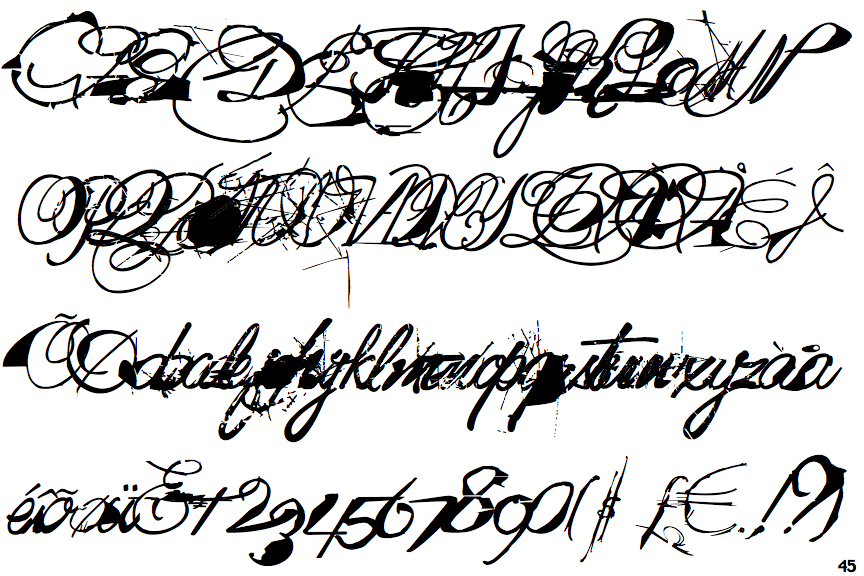 ABCDEFGHIJKLMN
OPQRSTUVWXYZÀÅÉÎ
ÕØabcdefghijklmnopqrstuvwxyzàå
éîõøü&1234567890($£€.,!?)
45